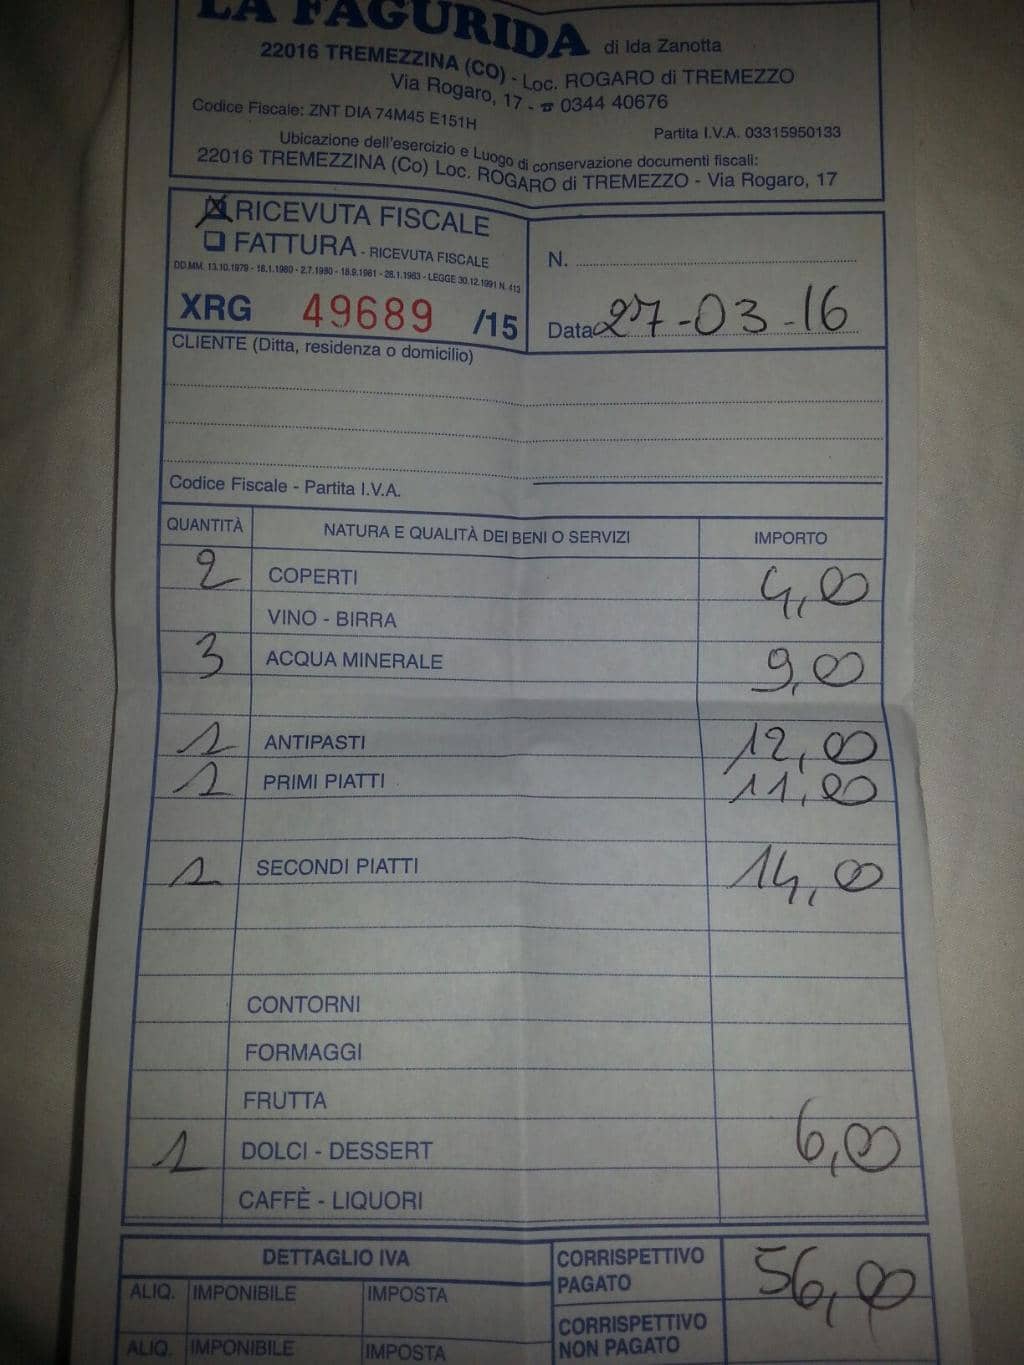 LA FAGURIDA di Ida Zanotta
22016 TREMEZZINA (CO) - Loc. ROGARO di TREMEZZO
Via Rogaro, 17 - ☎ 0344 40676
Codice Fiscale: ZNT DIA 74M45 E151H
Partita I.V.A. 03315950133
Ubicazione dell'esercizio e Luogo di conservazione documenti fiscali:
22016 TREMEZZINA (Co) Loc. ROGARO di TREMEZZO - Via Rogaro, 17
RICEVUTA FISCALE
FATTURA - RICEVUTA FISCALE
DD.MM. 13.10.1979 - 18.1.1980 - 2.7.1980 - 18.9.1981 - 28.1.1983 - LEGGE 30.12.1991 N. 413
XRG 49689 /15
N.
Data 27-03-16
CLIENTE (Ditta, residenza o domicilio)
Codice Fiscale - Partita I.V.A.
QUANTITÀ NATURA E QUALITÀ DEI BENI O SERVIZI IMPORTO
2 COPERTI 4,00
VINO - BIRRA
3 ACQUA MINERALE 9,00
1 ANTIPASTI 12,00
1 PRIMI PIATTI 11,00
1 SECONDI PIATTI 14,00
CONTORNI
FORMAGGI
FRUTTA
1 DOLCI - DESSERT 6,00
CAFFÈ - LIQUORI
DETTAGLIO IVA
CORRISPETTIVO PAGATO 56,00
ALIQ. IMPONIBILE IMPOSTA
CORRISPETTIVO NON PAGATO
ALIQ. IMPONIBILE IMPOSTA